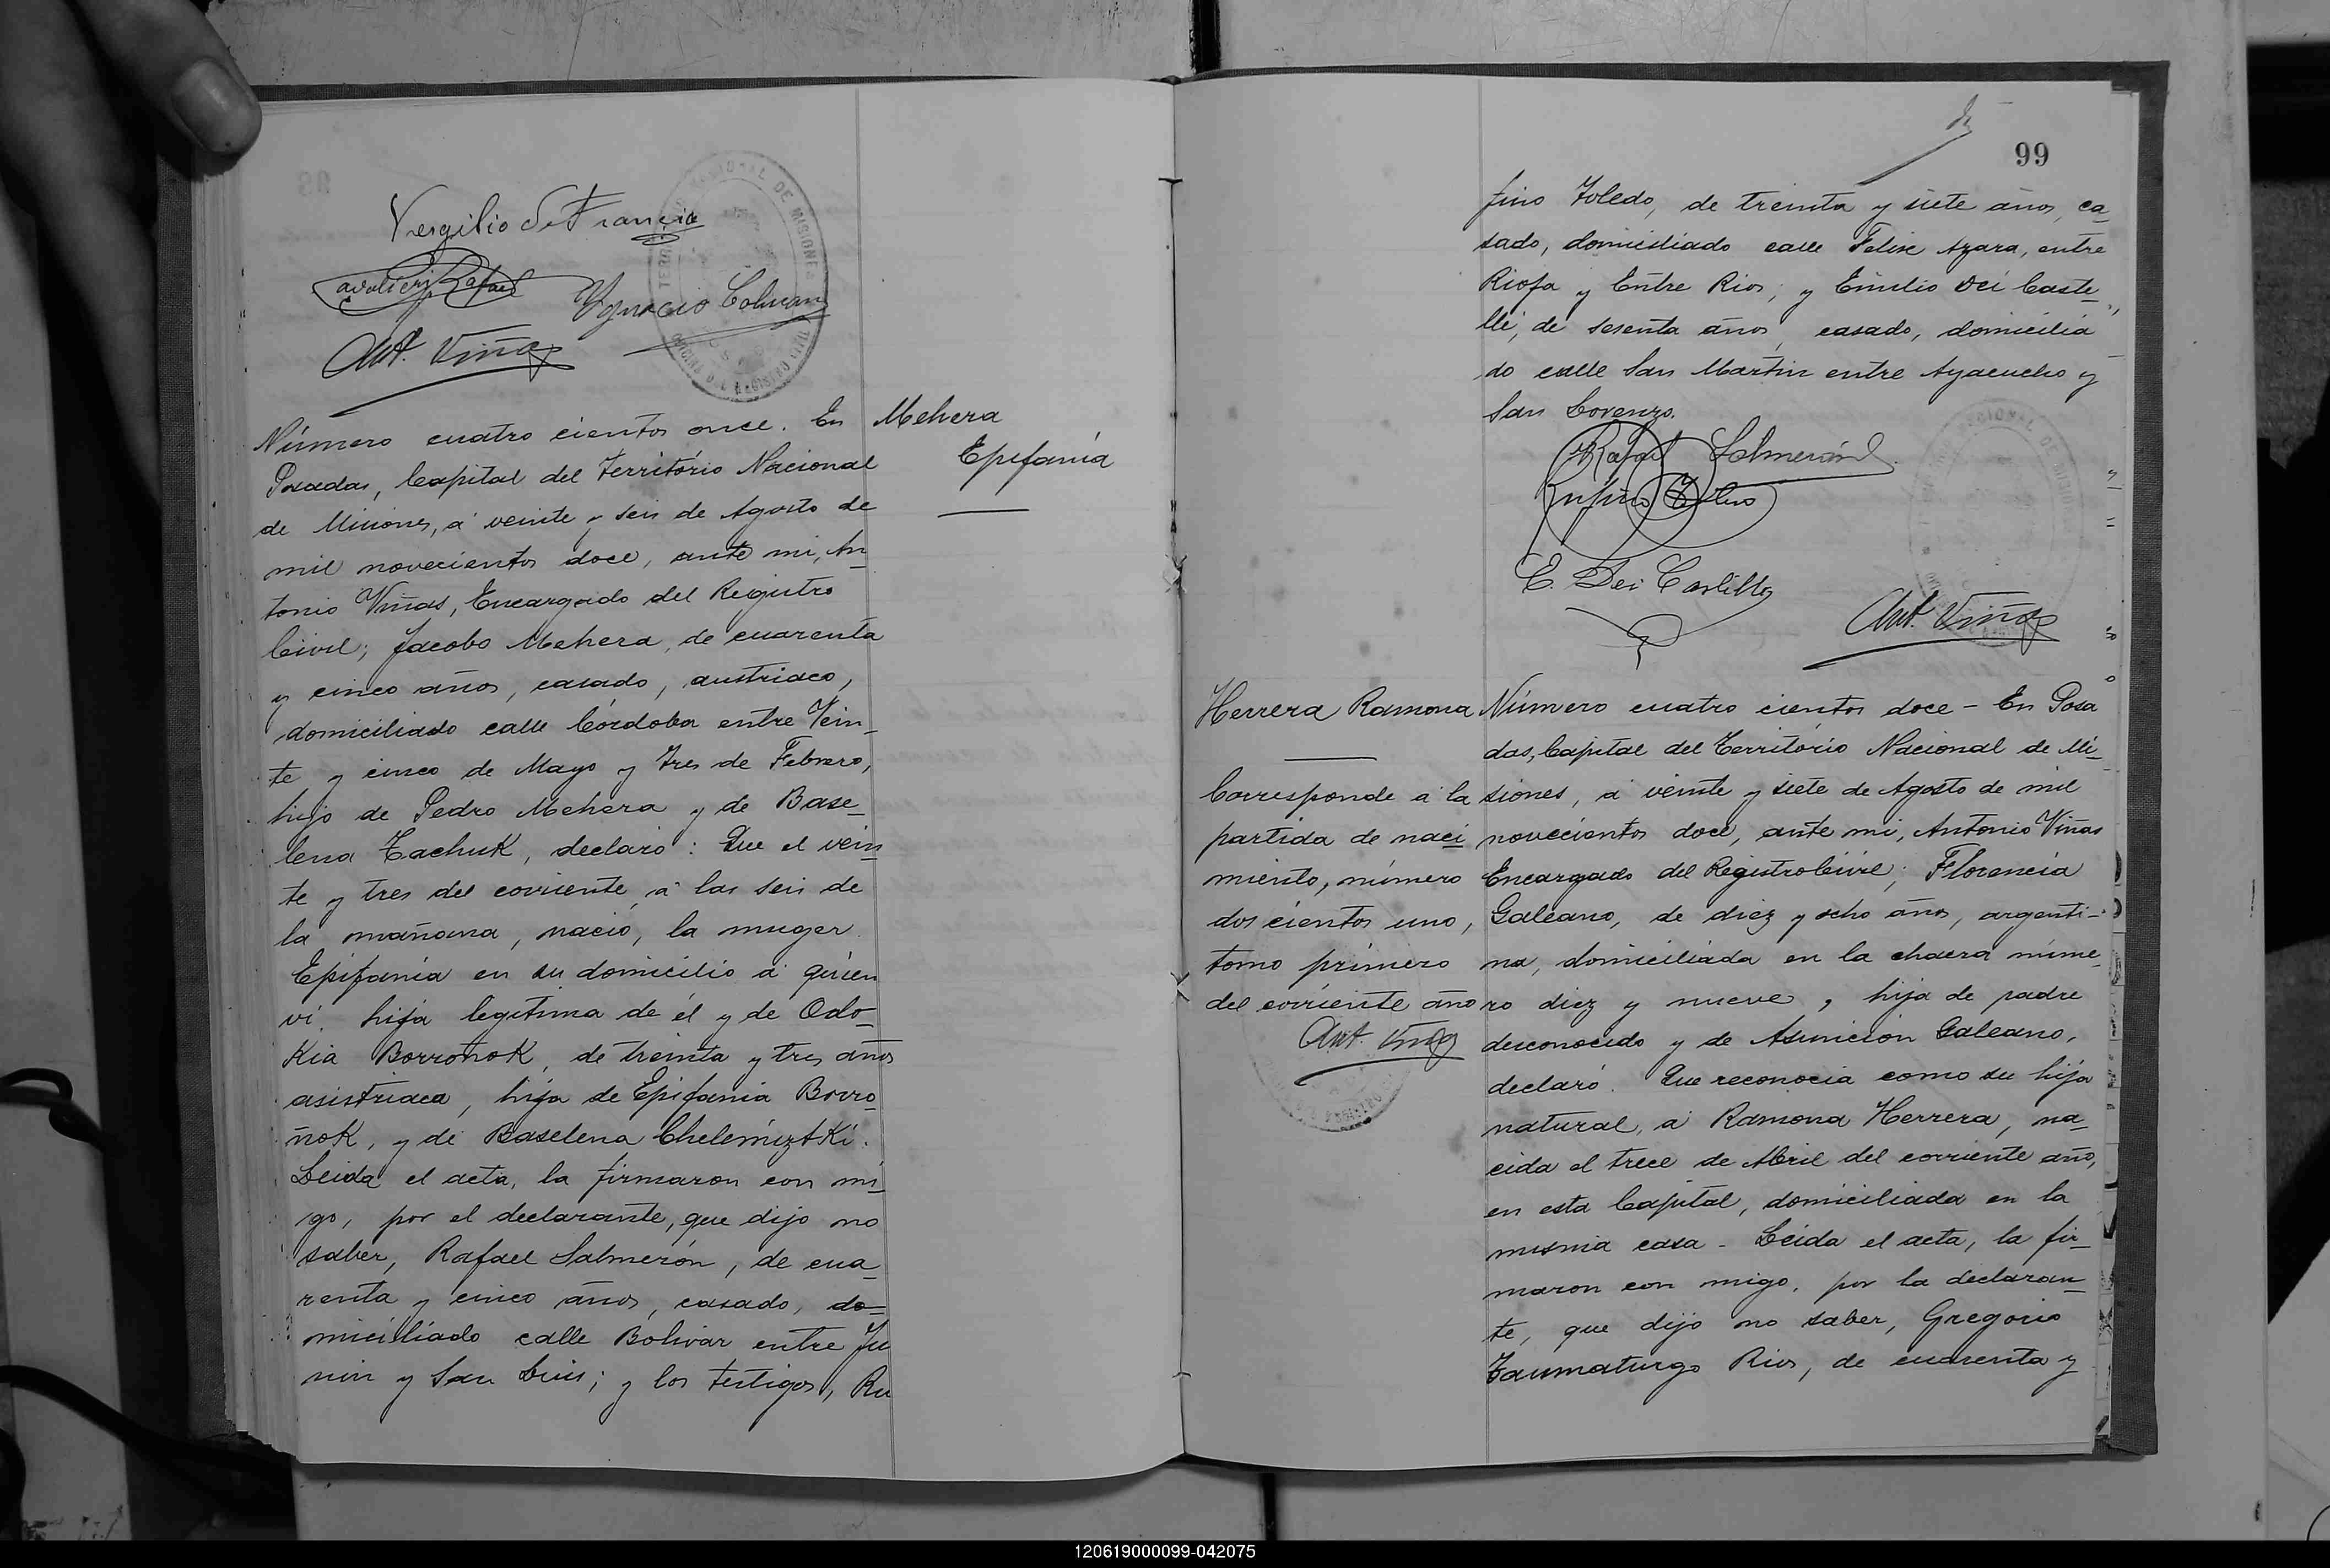 Vergilio Di Francia
Cavalieri Rafael
Ygnacio Colman
Ant. Viñas
Número cuatro cientos once. En
Posadas, Capital del Território Nacional
de Misiones, á veinte y seis de Agosto de
mil novecientos doce, ante mi, An_
tonio Viñas, Encargado del Registro
Civil; Jacobo Mehera, de cuarenta
y cinco años, casado, austriaco,
domiciliado calle Córdoba entre Vein_
te y cinco de Mayo y Tres de Febrero,
hijo de Pedro Mehera y de Base_
lena Tachuk, declaró: Que el vein
te y tres del corriente, á las seis de
la mañana, nació, la muger
Epifania en su domicilio á quien
vi, hija legítima de él y de Odo_
Kia Borroñok, de treinta y tres años
asistriaca, hija de Epifania Borro_
ñok, y de Baselena Chelemiztki.
Leida el acta, la firmaron con mi_
go, por el declarante, que dijo no
saber, Rafael Salmerón, de cua_
renta y cinco años, casado, do_
miciliado calle Bolivar entre Ju
nin y San Luis; y los testigos, Ru
Mehera
Epifanía
99
fino Toledo, de treinta y siete años, ca_
sado, domiciliado calle Felix Azara, entre
Rioja y Entre Rios; y Emilio Dei Caste_
lli, de sesenta años, casado, domicilia_
do calle San Martin entre Ayacucho y
San Lorenzo.
Rafael Salmerón
Rufino Toledo
E. Dei Castilli
Ant. Viñas
Herrera Ramona
Corresponde á la
partida de naci
miento, número
dos cientos uno,
tomo primero
del corriente año
Ant. Viñas
Número cuatro cientos doce - En Posa
das, Capital del Território Nacional de Mi_
siones, á veinte y siete de Agosto de mil
novecientos doce, ante mi, Antonio Viñas
Encargado del Registro Civil; Florencia
Galeano, de diez y ocho años, argenti-
na, domiciliada en la chacra núme_
ro diez y nueve, hija de padre
desconocido y de Asunción Galeano,
declaró. Que reconocia como su hija
natural, á Ramona Herrera, na_
cida el trece de Abril del corriente año,
en esta Capital, domiciliada en la
misma casa - Leida el acta, la fir_
maron con migo, por la declaran_
te, que dijo no saber, Gregorio
Taumaturgo Rios, de cuarenta y
120619000099-042075